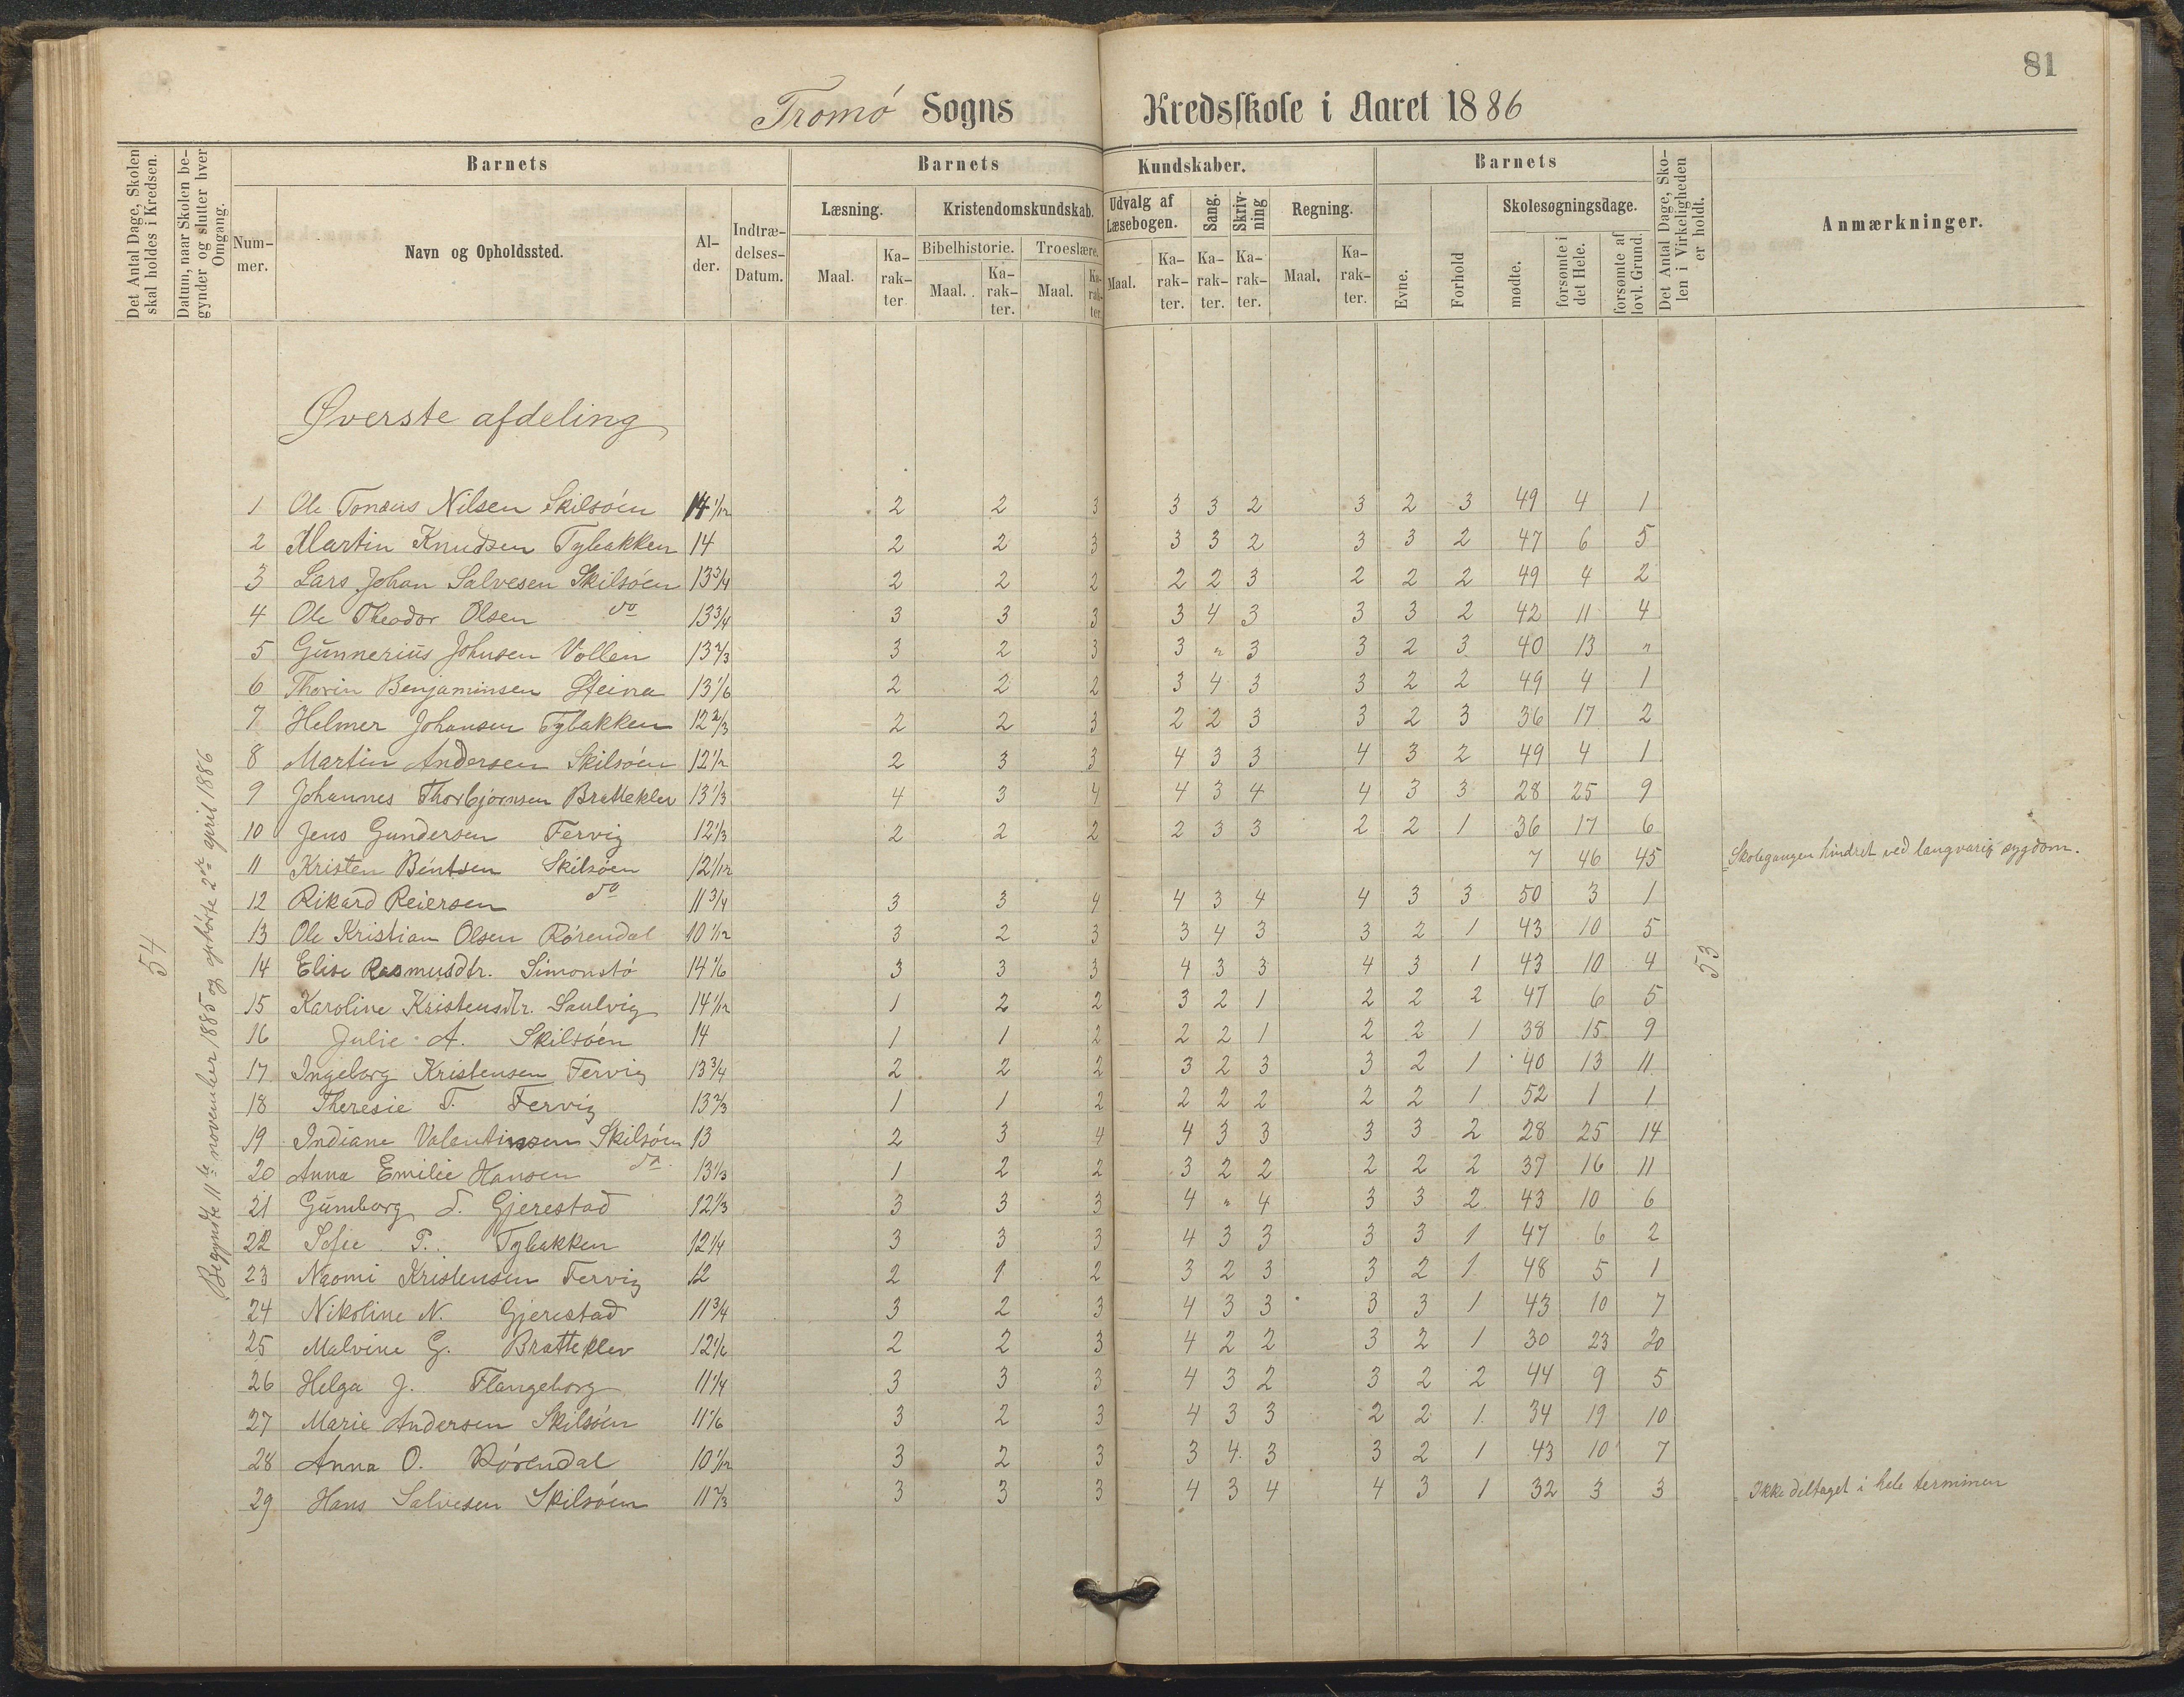 81
Tromø Sogns Kredsskole i Aaret 1886
Det Antal Dage, Skolen skal holdes i Kredsen.
Datum, naar Skolen begynder og slutter hver Omgang.
Barnets
Barnets Kundskaber.
Barnets
Det Antal Dage, Skolen i Virkeligheden er holdt.
Anmærkninger.
Nummer.
Navn og Opholdssted.
Alder.
Indtrædelses-Datum.
Læsning.
Kristendomskundskab.
Udvalg af Læsebogen.
Sang.
Skrivning
Regning.
Evne.
Forhold
Skolesøgningsdage.
Bibelhistorie.
Troeslære.
Maal. Karakter. Maal. Karakter. Maal. Karakter. Maal. Karakter. Karakter. Karakter. Maal. Karakter.
mødte.
forsømte i det Hele.
forsømte af lovl. Grund.
54
Begyndte 11te november 1885 og ophørte 2den april 1886
53
Øverste afdeling
1 Ole Tonæus Nilsen Skilsöen 14 1/12 2 2 3 3 3 2 3 2 3 49 4 1
2 Martin Knudsen Tybakken 14 2 2 3 3 3 2 3 3 2 47 6 5
3 Lars Johan Salvesen Skilsöen 13 3/4 2 2 2 2 2 3 2 2 2 49 4 2
4 Ole Theodor Olsen do 13 3/4 3 3 3 3 4 3 3 3 2 42 11 4
5 Gunnerius Johnsen Vollen 13 2/3 3 2 3 3 " 3 3 2 3 40 13 "
6 Thorin Benjaminsen Steina 13 1/6 2 2 2 3 4 3 3 2 2 49 4 1
7 Helmer Johansen Tybakken 12 2/3 2 2 3 2 2 3 3 2 3 36 17 2
8 Martin Andersen Skilsöen 12 1/2 2 3 3 4 3 3 4 3 2 49 4 1
9 Johannes Thorbjørnsen Bratteklev 13 1/3 4 3 4 4 3 4 4 3 3 28 25 9
10 Jens Gundersen Fervig 12 1/3 2 2 2 2 3 3 2 2 1 36 17 6
11 Kristen Bentsen Skilsöen 12 1/12 7 46 45 Skolegangen hindret ved langvarig sygdom.
12 Rikard Reiersen do 11 3/4 3 3 4 4 3 4 4 3 3 50 3 1
13 Ole Kristian Olsen Rörendal 10 1/12 3 2 3 3 4 3 3 2 1 43 10 5
14 Elise Rasmusdtr. Simonstö 14 1/6 3 3 3 4 3 3 4 3 1 43 10 4
15 Karoline Kristensdtr. Saulvig 14 1/12 1 2 2 3 2 1 2 2 2 47 6 5
16 Julie A. Skilsöen 14 1 1 2 2 2 1 2 2 1 38 15 9
17 Ingeborg Kristensen Fervig 13 3/4 2 2 2 3 2 3 3 2 1 40 13 11
18 Theresie T. Fervig 13 2/3 1 1 2 2 2 2 2 2 1 52 1 1
19 Indiane Valentinsen Skilsöen 13 2 3 4 4 3 3 3 3 2 28 25 14
20 Anna Emilie Hansen do 13 1/3 1 2 2 3 2 2 2 2 2 37 16 11
21 Gumborg S. Gjerestad 12 1/3 3 3 3 4 " 4 3 3 2 43 10 6
22 Sofie P. Tybakken 12 1/4 3 3 3 4 3 3 3 3 1 47 6 2
23 Naomi Kristensen Fervig 12 2 1 2 3 2 3 3 2 1 48 5 1
24 Nikoline N. Gjerestad 11 3/4 3 2 3 4 3 3 3 3 1 43 10 7
25 Malvine G. Bratteklev 12 1/6 2 2 3 4 2 2 3 2 1 30 23 20
26 Helga J. Flangeborg 11 1/4 3 3 3 4 3 2 3 2 2 44 9 5
27 Marie Andersen Skilsöen 11 1/6 3 2 3 4 3 3 2 2 1 34 19 10
28 Anna O. Rörendal 10 1/12 3 2 3 3 4 3 3 2 1 43 10 7
29 Hans Salvesen Skilsöen 11 2/3 3 3 3 4 3 4 4 3 1 32 3 3 Ikke deltaget i hele terminen